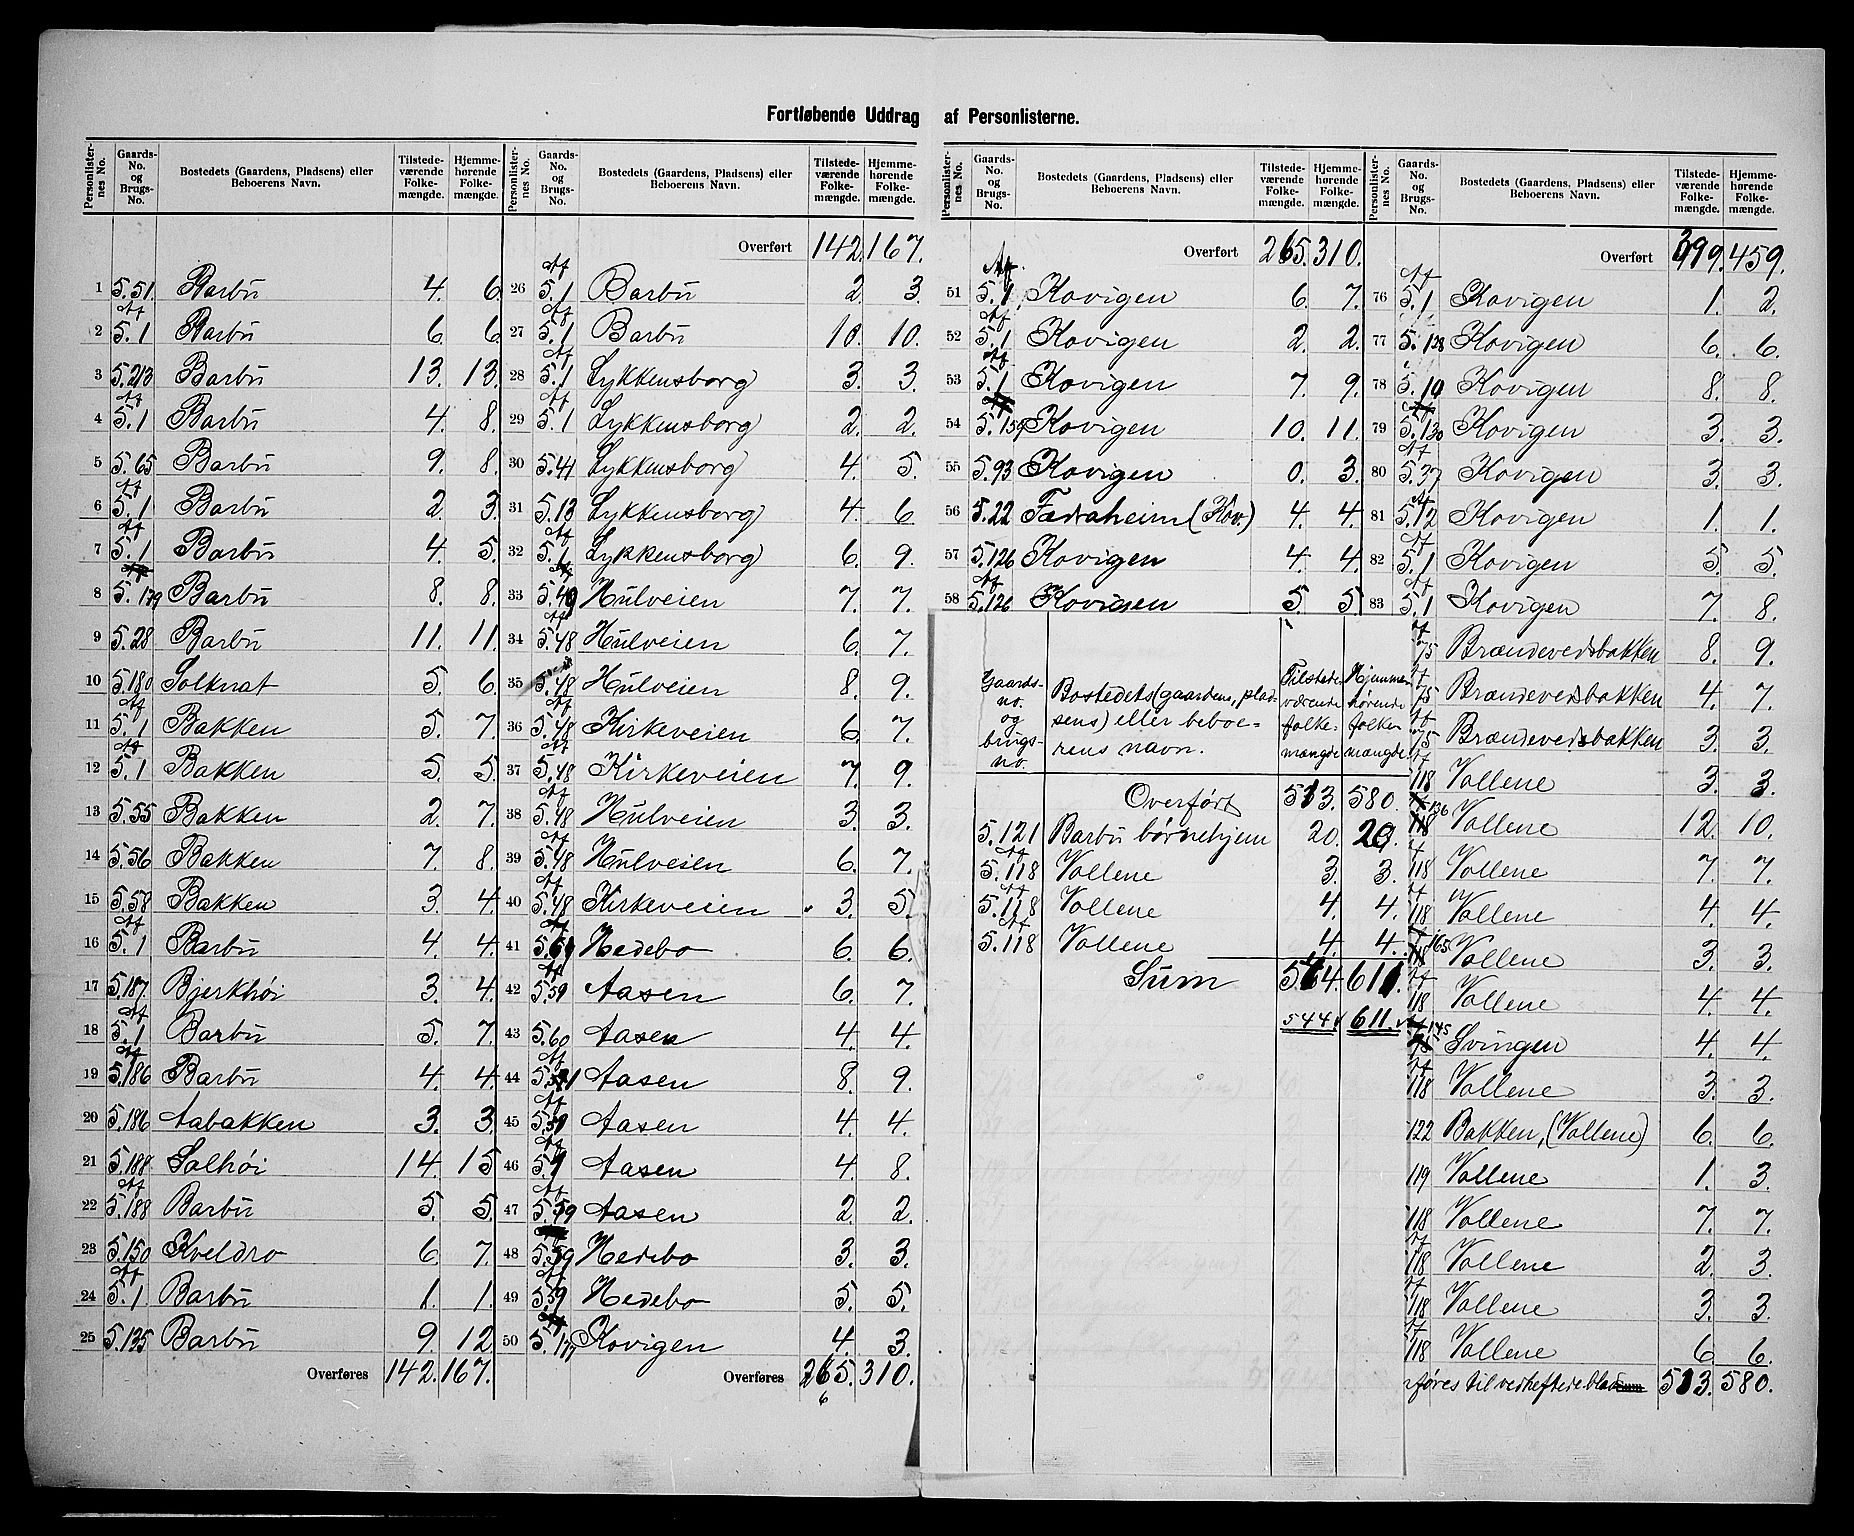 Fortløbende Uddrag af Personlisternе.
Personlister-nes No. Gaards-No. og Brugs-No. Bostedets (Gaardens, Pladsens) eller Beboerens Navn. Tilstede-værende Folke-mængde. Hjemme-hørende Folke-mængde.
1 5.51. Barbu 4. 6.
2 Af 5.1 Barbu 6. 6.
3 5.213 Barbu 13. 13.
4 Af 5.1 Barbu 4. 8.
5 5.65 Barbu 9. 8.
6 Af 5.1 Barbu 2. 3.
7 Af 5.1 Barbu 4. 5.
8 5.179 Barbu 8. 8.
9 5.28 Barbu 11. 11.
10 5.180 Solknat 5. 6.
11 Af 5.1 Bakken 5. 7.
12 Af 5.1 Bakken 5. 5.
13 5.55 Bakken 2. 7.
14 5.56 Bakken 7. 8.
15 5.58 Bakken 3. 4.
16 Af 5.1 Barbu 4. 4.
17 5.187 Bjerkhöi 3. 4.
18 Af 5.1 Barbu 5. 7.
19 Af 5.186 Barbu 4. 4.
20 5.186 Aabakken 3. 3.
21 5.188 Solhöi 14. 15
22 Af 5.188 Barbu 5. 5.
23 5.150 Kveldro 6. 7.
24 Af 5.1. Barbu 1. 1.
25 5.135 Barbu 9. 12
Overføres 142. 167.
Personlister-nes No. Gaards-No. og Brugs-No. Bostedets (Gaardens, Pladsens) eller Beboerens Navn. Tilstede-værende Folke-mængde. Hjemme-hørende Folke-mængde.
Overført 142. 167.
26 Af 5.1 Barbu 2. 3.
27 Af 5.1 Barbu 10. 10.
28 Af 5.1 Lykkensborg 3. 3.
29 Af 5.1 Lykkensborg 2. 2.
30 5.41 Lykkensborg 4. 5.
31 5.13 Lykkensborg 4. 6
32 Af 5.1 Lykkensborg 6. 9.
33 5.49 Hulveien 7. 7.
34 Af 5.48 Hulveien 6. 7.
35 5.48 Hulveien 8. 9.
36 Af 5.48 Kirkeveien 6. 7.
37 Af 5.48 Kirkeveien 7. 9.
38 Af 5.48 Hulveien 3. 3.
39 Af 5.48 Hulveien 6. 7.
40 Af 5.48 Kirkeveien 3. 5.
41 Hedebo 6. 6.
42 Af 5.59 Aasen 6. 7.
43 5.60 Aasen 4. 4.
44 Af Aasen 8. 9.
45 Af 5.59 Aasen 4. 4.
46 Af Aasen 4. 8.
47 Af 5.59 Aasen 2. 2.
48 5.59 Hedebo 3. 3.
49 Af 5.59 Hedebo 5. 5.
50 5.177 Kovigen 4. 3.
Overføres 265. 310.
6
Personlister-nes No. Gaards-No. og Brugs-No. Bostedets (Gaardens, Pladsens) eller Beboerens Navn. Tilstede-værende Folke-mængde. Hjemme-hørende Folke-mængde.
Overført 265. 310.
51 Af 5.1 Kovigen 6. 7.
52 Af 5.1 Kovigen 2. 2.
53 Af 5.1 Kovigen 7. 9.
54 5.159 Kovigen 10. 11.
55 5.93 Kovigen 0. 3.
56 5.22 Fedraheim (Kov.) 4. 4.
57 5.126 Kovigen 4. 4.
58 Af 5.126 Kovigen 5. 5.
Gaards-no. og brugs-no. Bostedets (gaardens, pladsens) eller beboerens navn. Tilstede værende folke-mængde Hjemme hørende folke mængde.
Overført 513. 580.
5.121 Barbu børnehjem 20. 20.
Af 5.118 Vollene 3. 3.
Af 5.118 Vollene 4. 4.
Af 5.118 Vollene 4. 4.
Sum 544. 611.
544 611.
Personlister-nes No. Gaards-No. og Brugs-No. Bostedets (Gaardens, Pladsens) eller Beboerens Navn. Tilstede-værende Folke-mængde. Hjemme-hørende Folke-mængde.
Overført 399. 459.
76 Af 5.1 Kovigen 1. 2.
77 5.128 Kovigen 6. 6.
78 5.10 Kovigen 8. 8.
79 5.130 Kovigen 3. 3.
80 Af 5.37 Kovigen 3. 3.
81 5.12 Kovigen 1. 1.
82 Af 5.1 Kovigen 5. 5.
83 Af 5.1 Kovigen 7. 8.
Af 75 Brændevedsbakken 8. 9.
75 Brændevedsbakken 4. 7.
75 Brændevedsbakken 3. 3.
118 Vollene 3. 3.
136 Vollene 12. 10.
118 Vollene 7. 7.
118 Vollene 4. 4.
165 Vollene 3. 3.
118 Vollene 4. 4.
145 Svingen 4. 4.
118 Vollene 3. 3.
122 Bakken, (Vollene) 6. 6.
119 Vollene 1. 3.
118 Vollene 7. 7.
118 Vollene 2. 3.
118 Vollene 3. 3.
118 Vollene 6 6.
føres til vedheftede blad 513. 580.